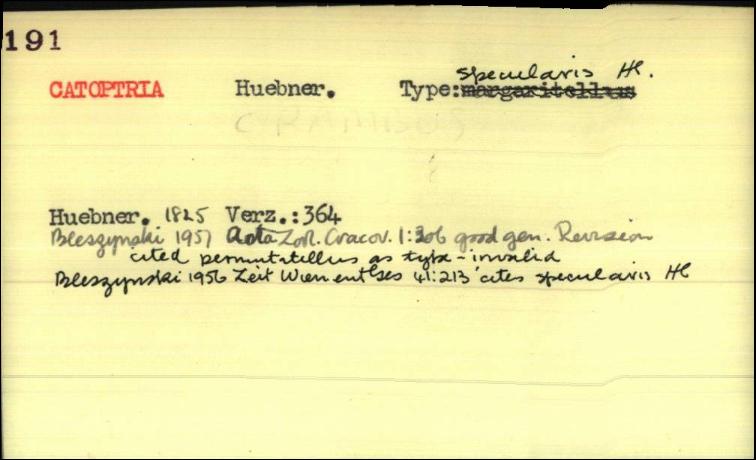 191
specularis Hb.
CATOPTRIA Huebner. Type: margaritellus
Huebner. 1825 Verz.:364
Bleszynski 1957 Acta Zool. Cracov. 1:306 good gen. Revision
cited permutatellus as type - invalid
Bleszynski 1956 Zeit Wien ent Ges 41:213 cites specularis Hb